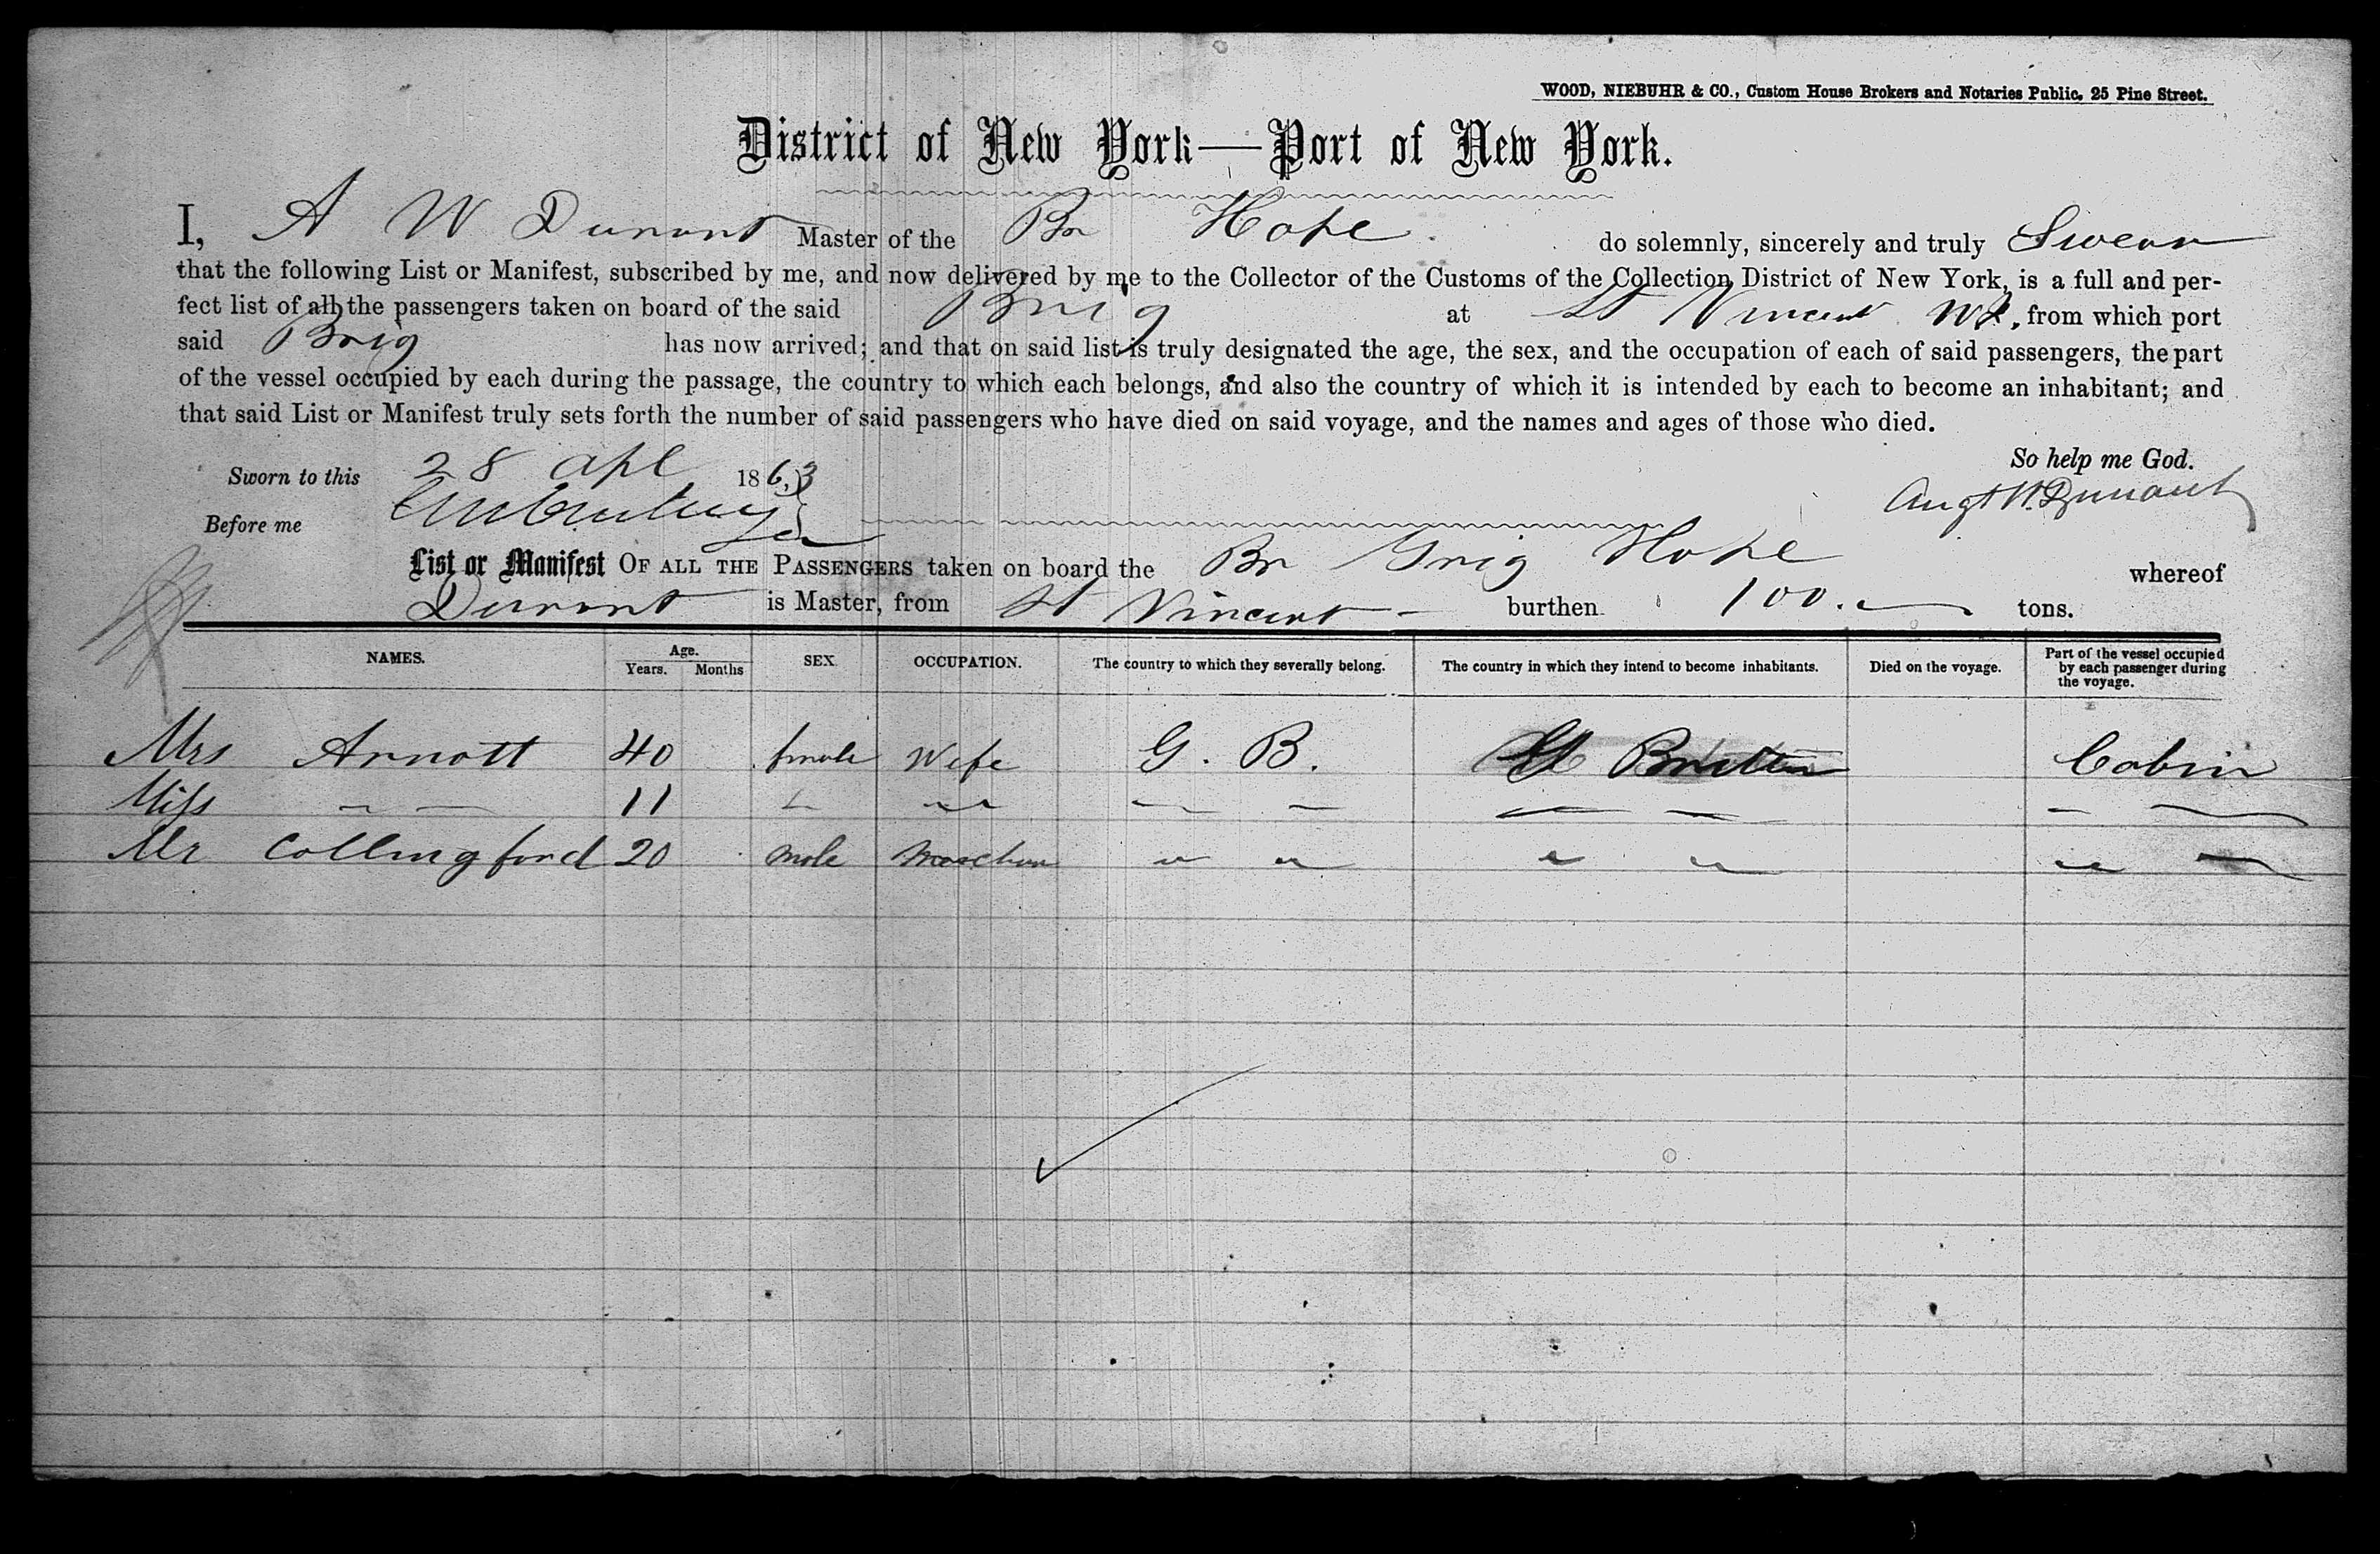 WOOD, NIEBUHR & CO., Custom House Brokers and Notaries Public, 25 Pine Street.
District of New York—Port of New York.
I, A W Durant Master of the Br Hope do solemnly, sincerely and truly Swear
that the following List or Manifest, subscribed by me, and now delivered by me to the Collector of the Customs of the Collection District of New York, is a full and per-
fect list of all the passengers taken on board of the said Brig at St Vincent W.I., from which port
said Brig has now arrived; and that on said list is truly designated the age, the sex, and the occupation of each of said passengers, the part
of the vessel occupied by each during the passage, the country to which each belongs, and also the country of which it is intended by each to become an inhabitant; and
that said List or Manifest truly sets forth the number of said passengers who have died on said voyage, and the names and ages of those who died.
So help me God.
Sworn to this 28 Apl 1863
Augt W. Durant
Before me
List or Manifest OF ALL THE PASSENGERS taken on board the Br Brig Hope whereof
Durant is Master, from St Vincent burthen 100. tons.
NAMES. Age. Years. Months SEX. OCCUPATION. The country to which they severally belong. The country in which they intend to become inhabitants. Died on the voyage. Part of the vessel occupied by each passenger during the voyage.
Mrs Arnott 40 female Wife G. B. Gt Britain Cabin
Miss — — 11 " " — — — — — —
Mr Collingford 20 male " " " " " —